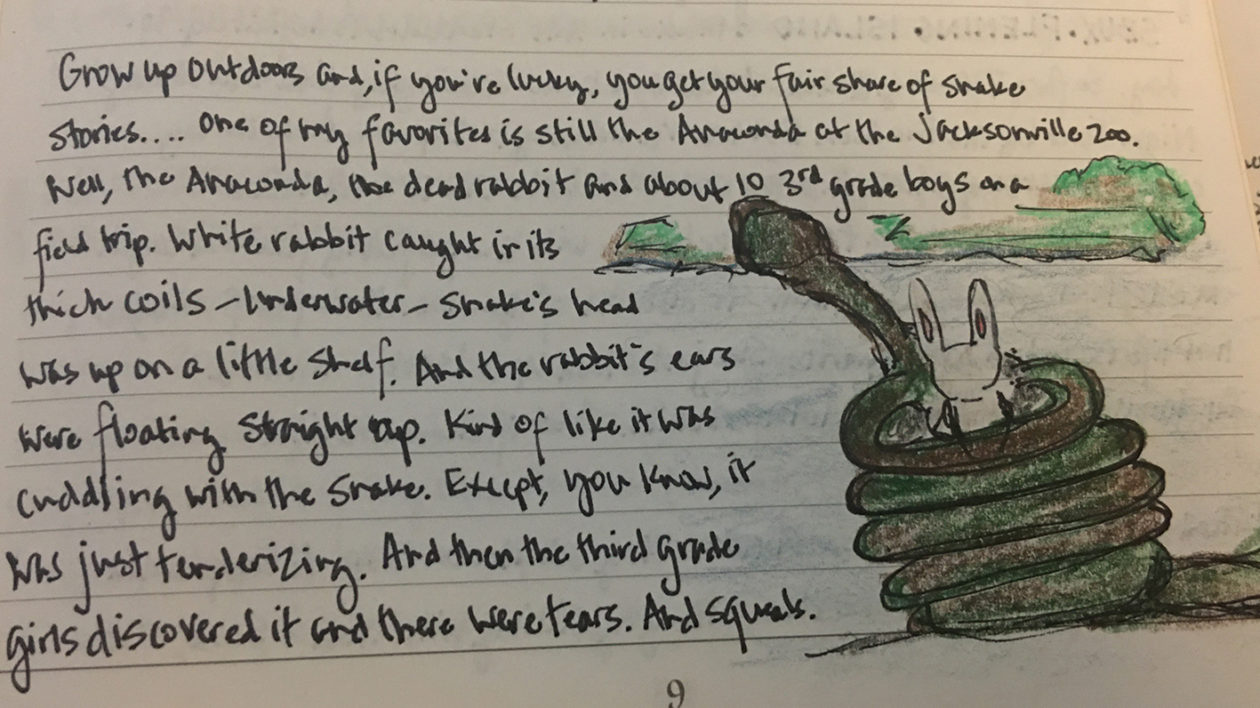 Grow up outdoors and, if you're lucky, you get your fair share of snake
stories.... One of my favorites is still the Anaconda at the Jacksonville Zoo.
Well, the Anaconda, the dead rabbit and about 10 3rd grade boys on a
field trip. White rabbit caught in its
thick coils - Underwater - Snake's head
was up on a little shelf. And the rabbit's ears
were floating straight up. Kind of like it was
cuddling with the snake. Except, you know, it
was just tenderizing. And then the third grade
girls discovered it and there were tears. And squeals.
9